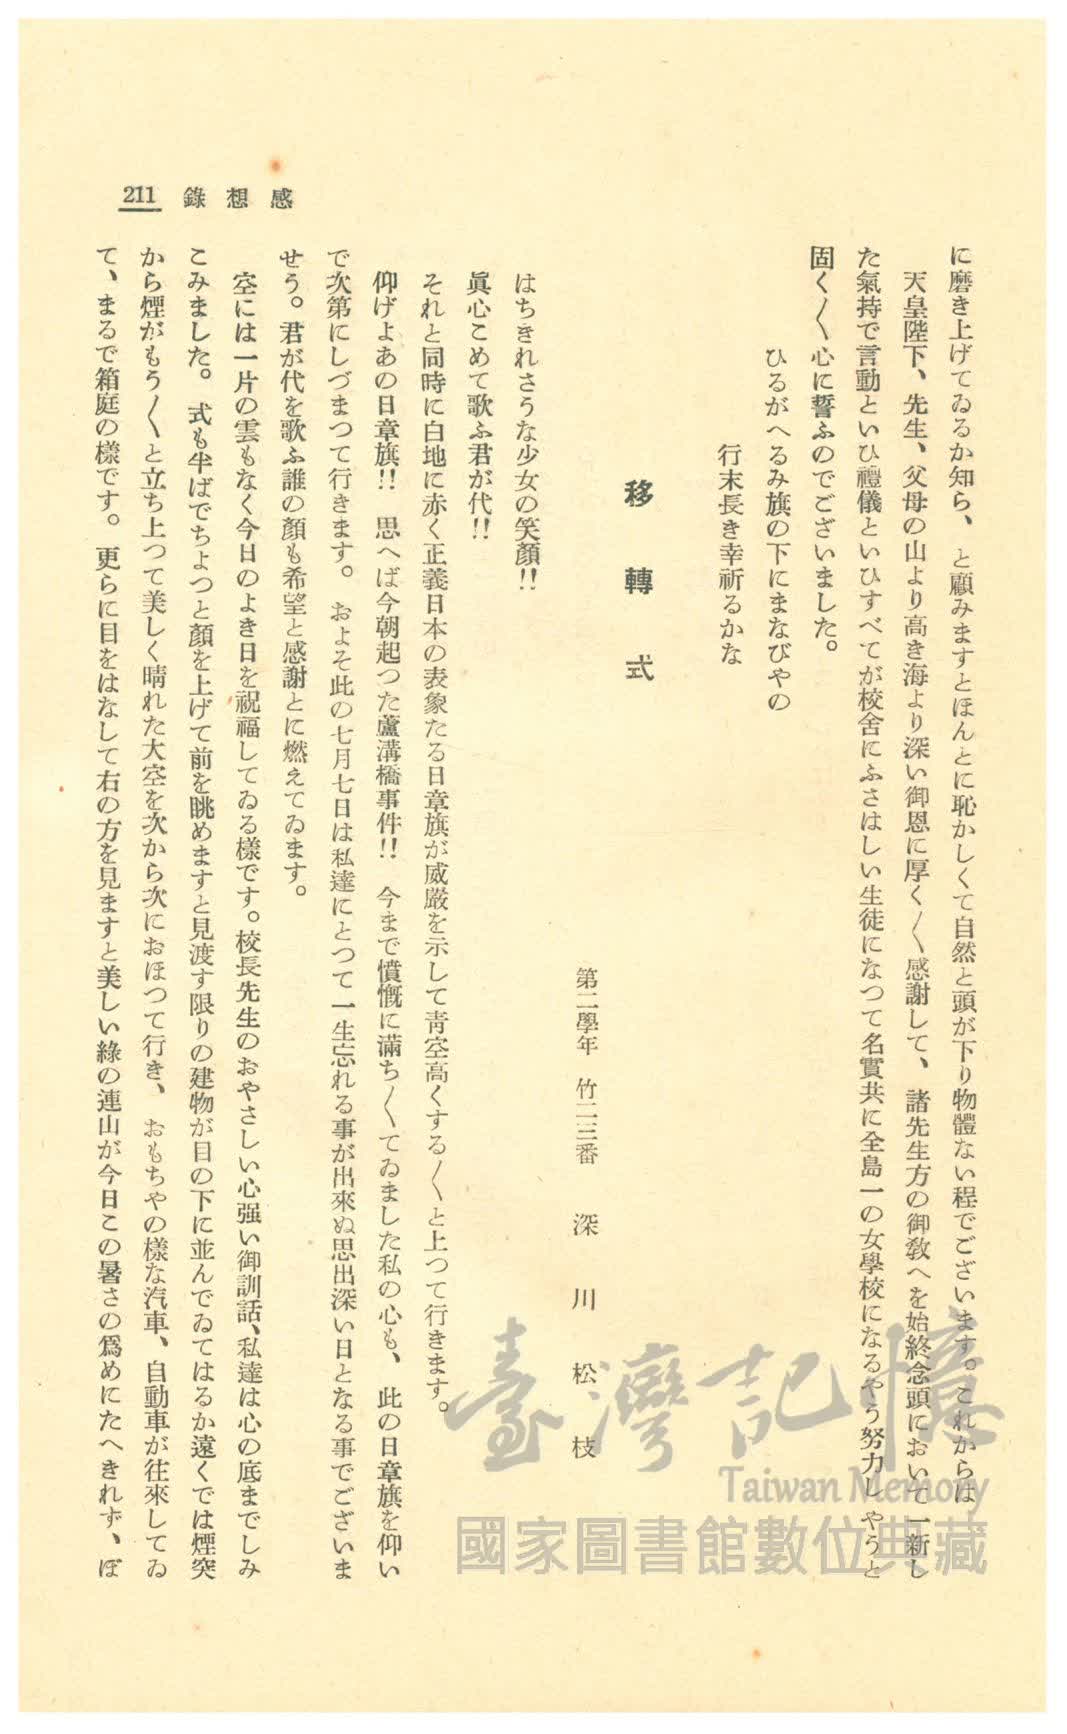 感想錄 211
に磨き上げてゐるか知ら、と顧みますとほんとに恥かしくて自然と頭が下り物體ない程でございます。これからは
天皇陛下、先生、父母の山より高き海より深い御恩に厚く〱感謝して、諸先生方の御教へを始終念頭において一新し
た氣持で言動といひ禮儀といひすべてが校舍にふさはしい生徒になつて名實共に全島一の女學校になるやう努力しやうと
固く〱心に誓ふのでございました。
ひるがへるみ旗の下にまなびやの
行末長き幸祈るかな
移轉式
第二學年 竹二三番 深川松枝
はちきれさうな少女の笑顏!!
眞心こめて歌ふ君が代!!
それと同時に白地に赤く正義日本の表象たる日章旗が威嚴を示して靑空高くする〱と上つて行きます。
仰げよあの日章旗!! 思へば今朝起つた蘆溝橋事件!! 今まで憤慨に滿ち〱てゐました私の心も、此の日章旗を仰い
で次第にしづまつて行きます。およそ此の七月七日は私達にとつて一生忘れる事が出來ぬ思出深い日となる事でございま
せう。君が代を歌ふ誰の顏も希望と感謝とに燃えてゐます。
空には一片の雲もなく今日のよき日を祝福してゐる樣です。校長先生のおやさしい心强い御訓話、私達は心の底までしみ
こみました。式も半ばでちよつと顏を上げて前を眺めますと見渡す限りの建物が目の下に並んでゐてはるか遠くでは煙突
から煙がもう〱と立ち上つて美しく晴れた大空を次から次におほつて行き、おもちやの樣な汽車、自動車が往來してゐ
て、まるで箱庭の樣です。更らに目をはなして右の方を見ますと美しい綠の連山が今日この暑さの爲めにたへきれず、ぼ
臺灣記憶
Taiwan Memory
國家圖書館數位典藏